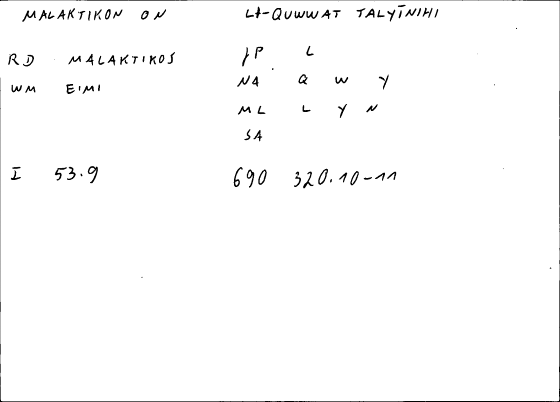 MALAKTIKON ON LI-QUWWAT TALYĪNIHI
RD MALAKTIKOS JP L
WM EIMI NA Q W Y
ML L Y N
SA
I 53.9 690 320.10-11